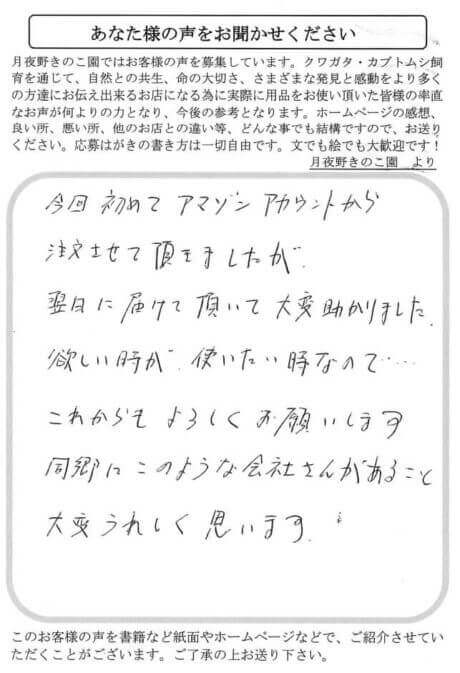 あなた様の声をお聞かせください
月夜野きのこ園ではお客様の声を募集しています。クワガタ・カブトムシ飼
育を通じて、自然との共生、命の大切さ、さまざまな発見と感動をより多く
の方達にお伝え出来るお店になる為に実際に用品をお使い頂いた皆様の率直
なお声が何よりの力となり、今後の参考となります。ホームページの感想、
良い所、悪い所、他のお店との違い等、どんな事でも結構ですので、お送り
ください。応募はがきの書き方は一切自由です。文でも絵でも大歓迎です！
月夜野きのこ園　より
今回 初めて アマゾン アカウントから
注文させて頂きましたが、
翌日に届けて頂いて大変助かりました。
欲しい時が、使いたい時なので……
これからも よろしく お願いします
同郷に このような会社さんがあること
大変うれしく 思います。
このお客様の声を書籍など紙面やホームページなどで、ご紹介させてい
ただくことがございます。ご了承の上お送り下さい。